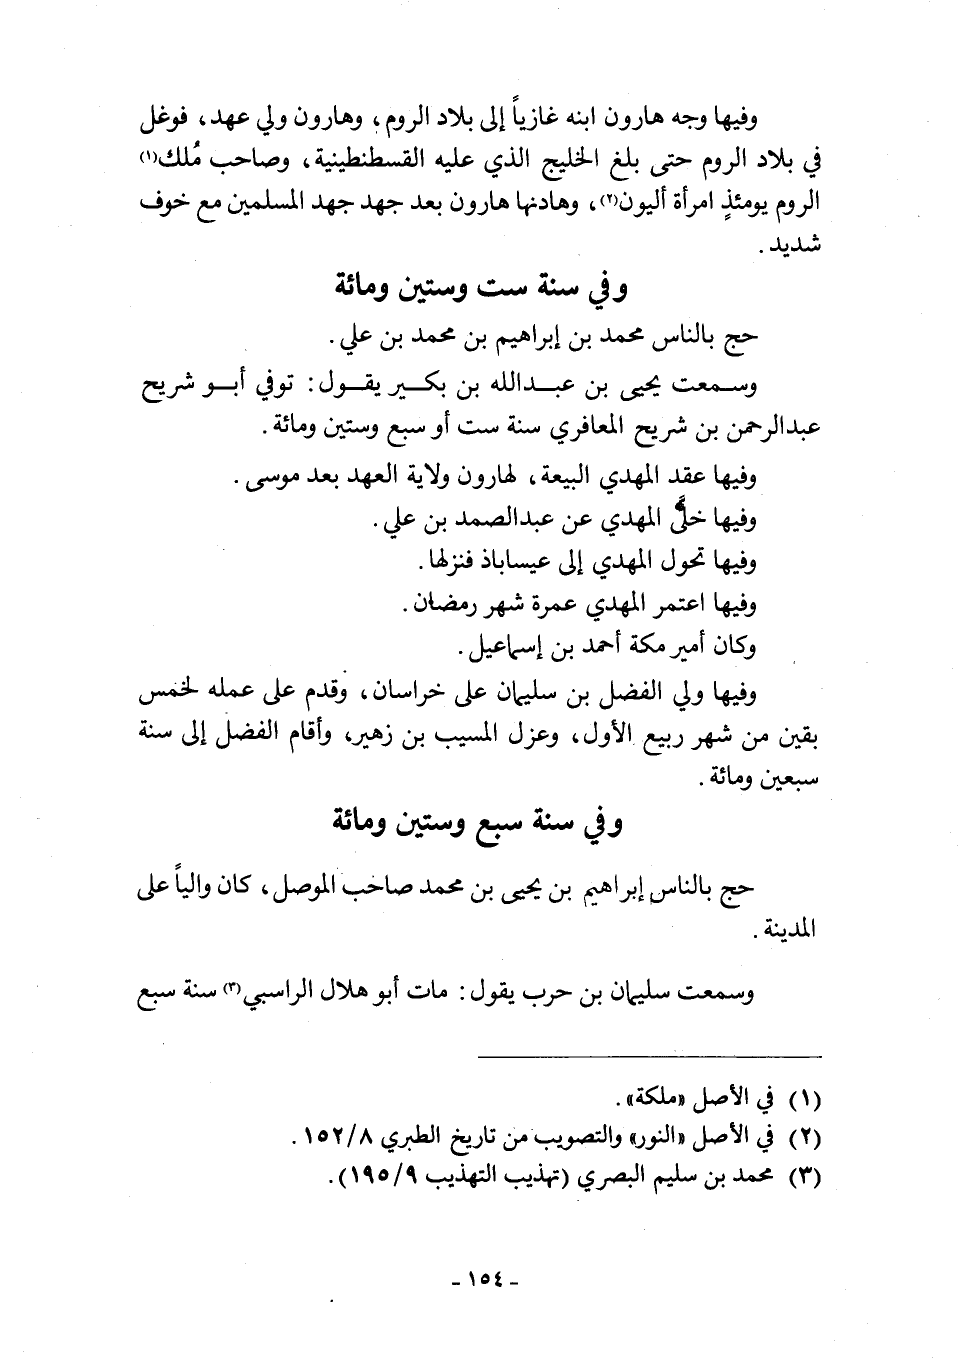 وفيها وجه هارون ابنه غازياً إلى بلاد الروم، وهارون ولي عهد، فوغل
في بلاد الروم حتى بلغ الخليج الذي عليه القسطنطينية، وصاحب مُلك(١)
الروم يومئذٍ امرأة أليون(٢)، وهادنها هارون بعد جهد جهد المسلمين مع خوف
شديد.
وفي سنة ست وستين ومائة
حج بالناس محمد بن إبراهيم بن محمد بن علي.
وسمعت يحيى بن عبدالله بن بكير يقول: توفي أبو شريح
عبدالرحمن بن شريح المعافري سنة ست أو سبع وستين ومائة.
وفيها عقد المهدي البيعة، لهارون ولاية العهد بعد موسى.
وفيها خلَّى المهدي عن عبدالصمد بن علي.
وفيها تحول المهدي إلى عيساباذ فنزلها.
وفيها اعتمر المهدي عمرة شهر رمضان.
وكان أمير مكة أحمد بن إسماعيل.
وفيها ولي الفضل بن سليمان على خراسان، وقدم على عمله لخمس
بقين من شهر ربيع الأول، وعزل المسيب بن زهير، وأقام الفضل إلى سنة
سبعين ومائة.
وفي سنة سبع وستين ومائة
حج بالناس إبراهيم بن يحيى بن محمد صاحب الموصل، كان والياً على
المدينة.
وسمعت سليمان بن حرب يقول: مات أبو هلال الراسبي(٣) سنة سبع
(١) في الأصل «ملكة».
(٢) في الأصل «النور» والتصويب من تاريخ الطبري ١٥٢/٨.
(٣) محمد بن سليم البصري (تهذيب التهذيب ١٩٥/٩).
- ١٥٤ -